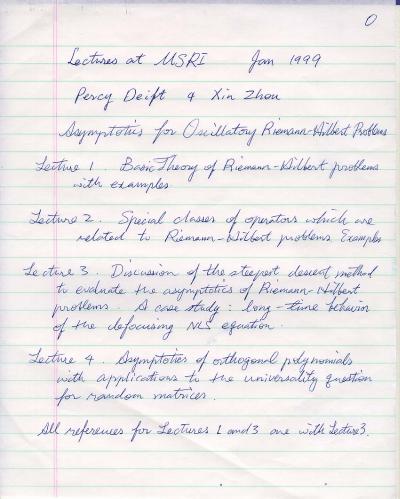 0
Lectures at MSRI Jan 1999
Percy Deift & Xin Zhou
Asymptotics for Oscillatory Riemann-Hilbert Problems
Lecture 1 Basic Theory of Riemann-Hilbert problems
with examples
Lecture 2. Special classes of operators which are
related to Riemann-Hilbert problems. Examples
Lecture 3. Discussion of the steepest descent method
to evaluate the asymptotics of Riemann-Hilbert
problems. A case study: long-time behavior
of the defocusing NLS equation.
Lecture 4. Asymptotics of orthogonal polynomials
with applications to the universality question
for random matrices.
All references for Lectures 1 and 3 are with Lecture 3.